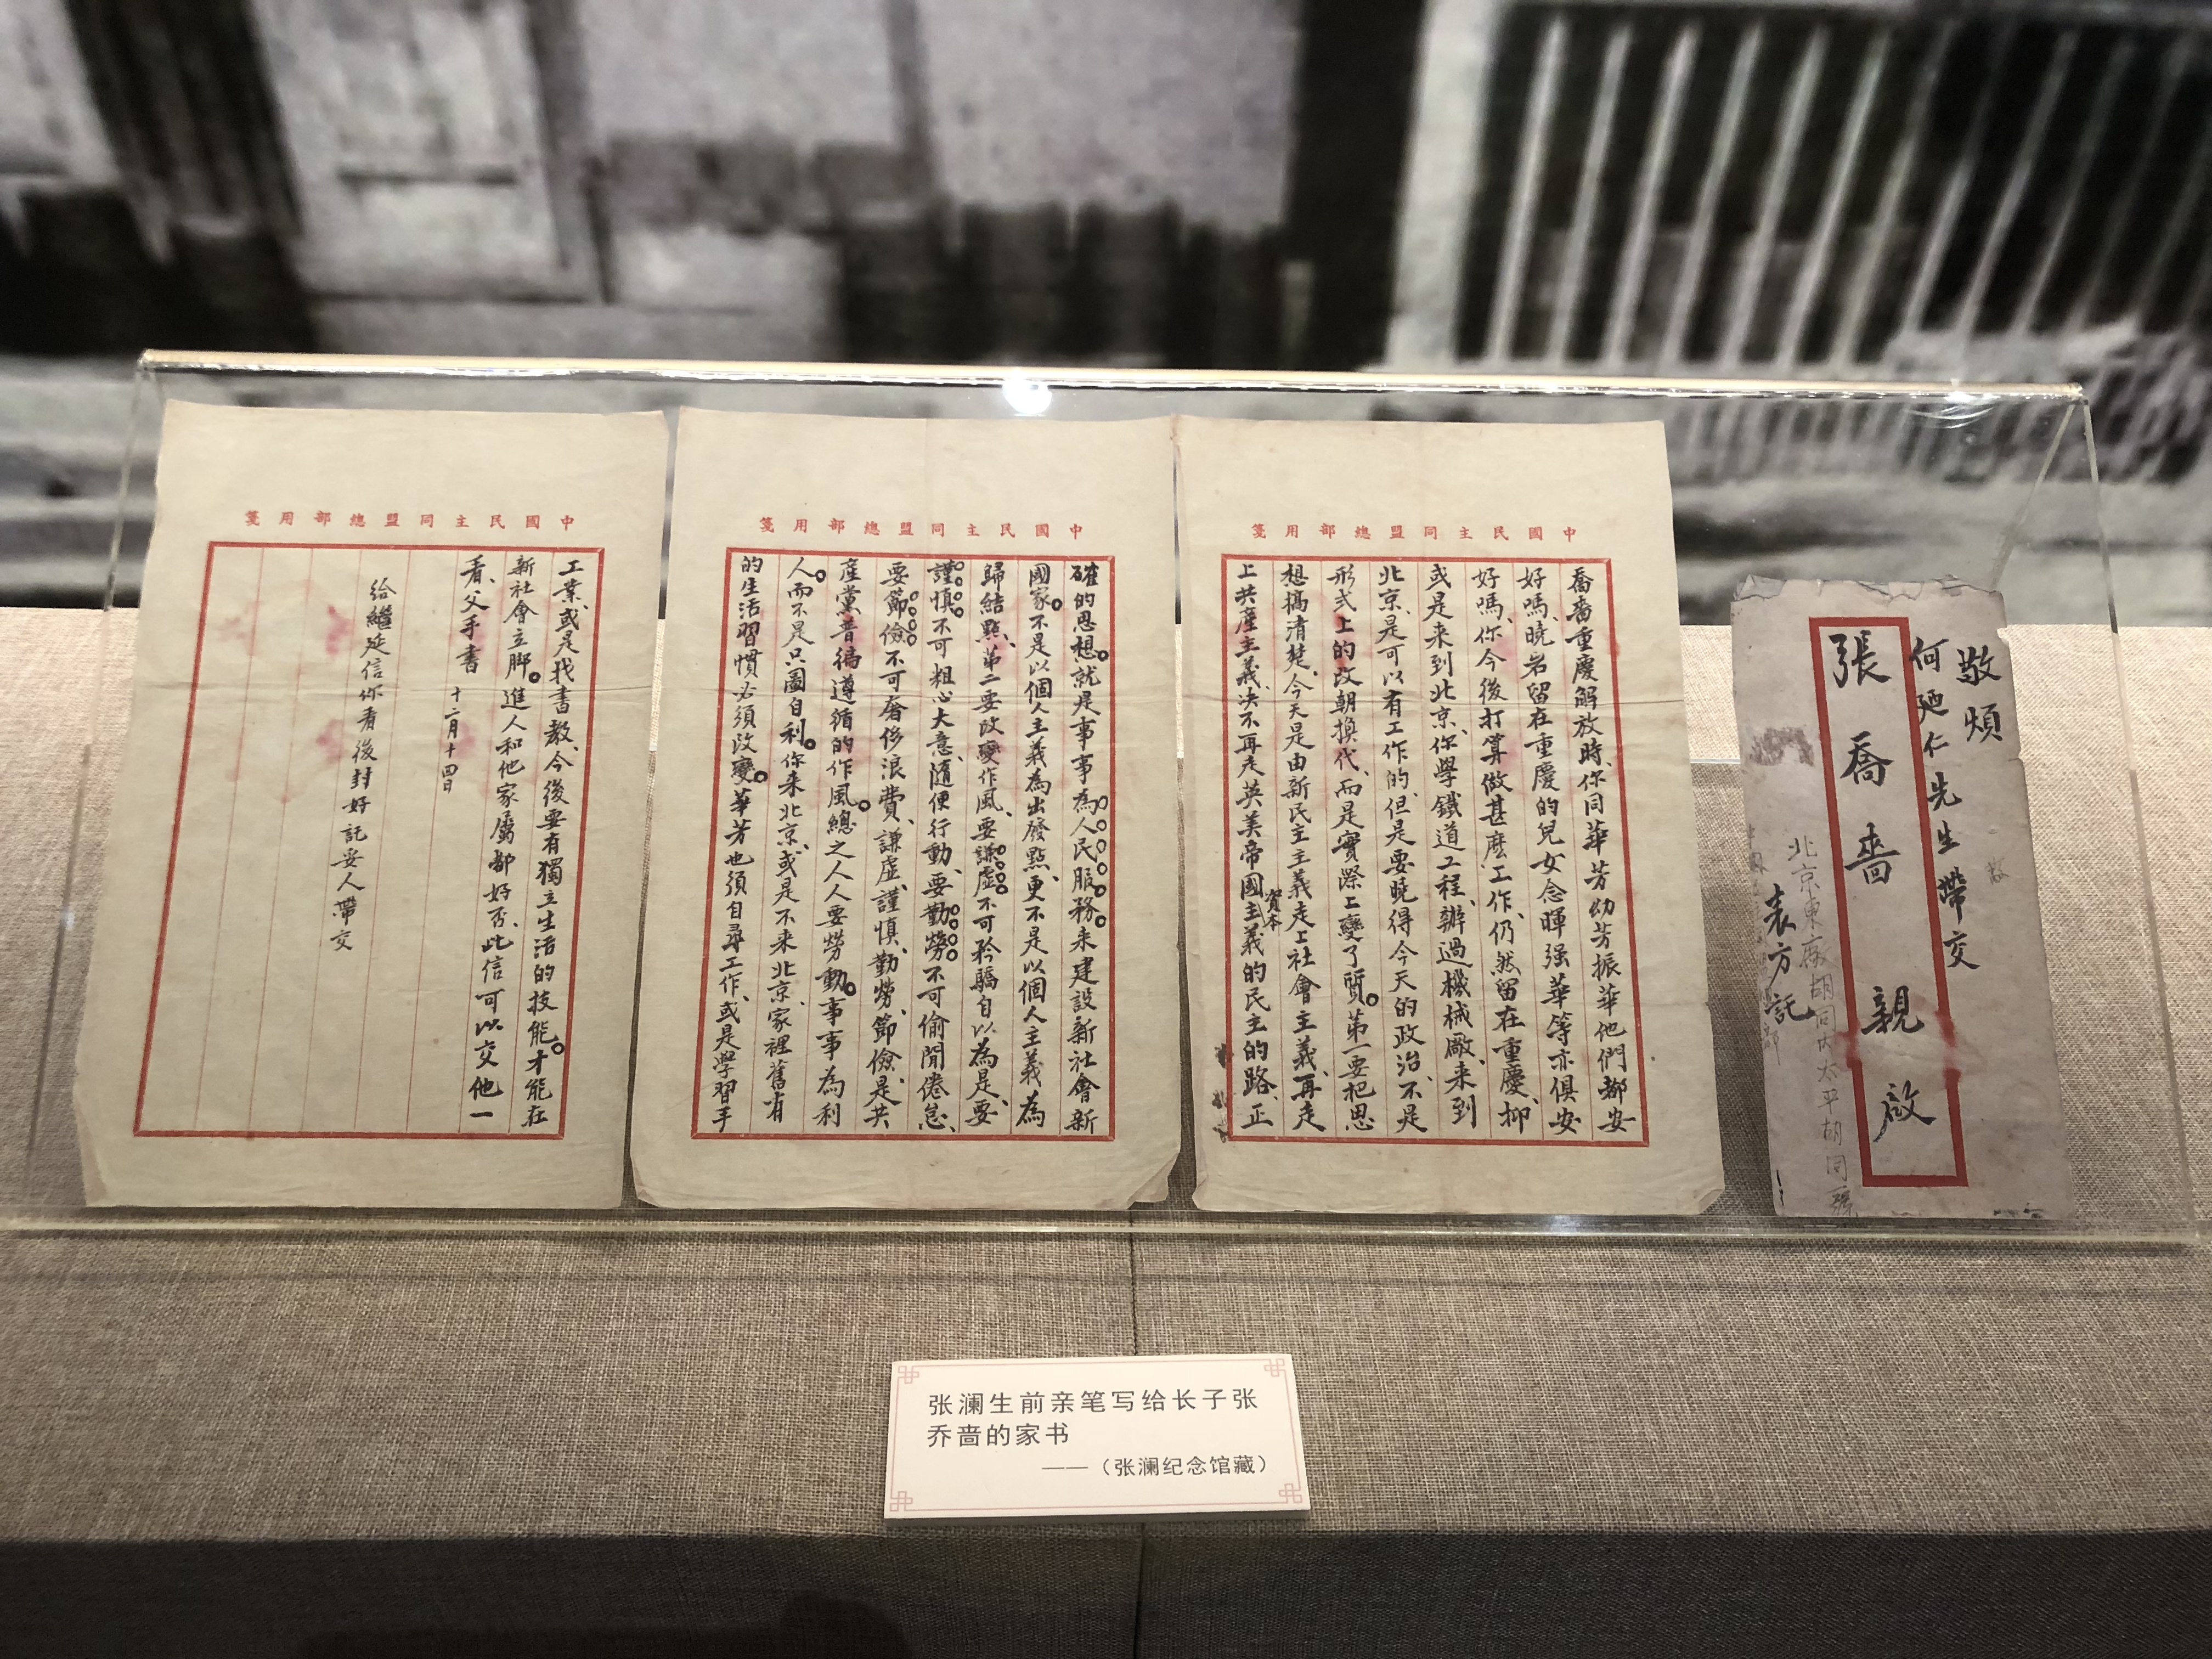 敬煩
何廼仁先生帶交
張喬嗇親啟
表方託
北京東廠胡同內太平胡同號
中國民主同盟總部用箋
喬嗇重慶解放時、你同華芳幼芳振華他們都安
好嗎、曉岩留在重慶的兒女念暉强華等亦俱安
好嗎、你今後打算做甚麽工作、仍然留在重慶、抑
或是来到北京、你學鐵道工程、辦過機械廠、来到
北京、是可以有工作的、但是要曉得今天的政治、不是
形式上的改朝換代、而是實際上變了質。第一要把思
想搞清楚、今天是由新民主主義走上社會主義、再走
上共產主義、决不再走英美帝國資本主義的民主的路、正
中國民主同盟總部用箋
確的思想。就是事事為人民服務。来建設新社會新
國家。不是以個人主義為出發點、更不是以個人主義為
歸結點、第二要改變作風、要謙虛不可矜驕自以為是、要
謹慎不可粗心大意、隨便行動、要勤勞不可偷閒倦怠、
要節儉不可奢侈浪費、謙虛、謹慎、勤勞、節儉、是共
產黨普徧遵循的作風。總之人人要勞動。事事為利
人。而不是只圖自利。你来北京、或是不来北京、家裡舊有
的生活習慣必須改變。華芳也須自尋工作、或是學習手
中國民主同盟總部用箋
工業、或是找書教、今後要有獨立生活的技能。才能在
新社會立脚。進人和他家屬都好否、此信可以交他一
看、父手書 十二月十四日
給繼延信你看後封好託妥人帶交
张澜生前亲笔写给长子张
乔啬的家书
——（张澜纪念馆藏）